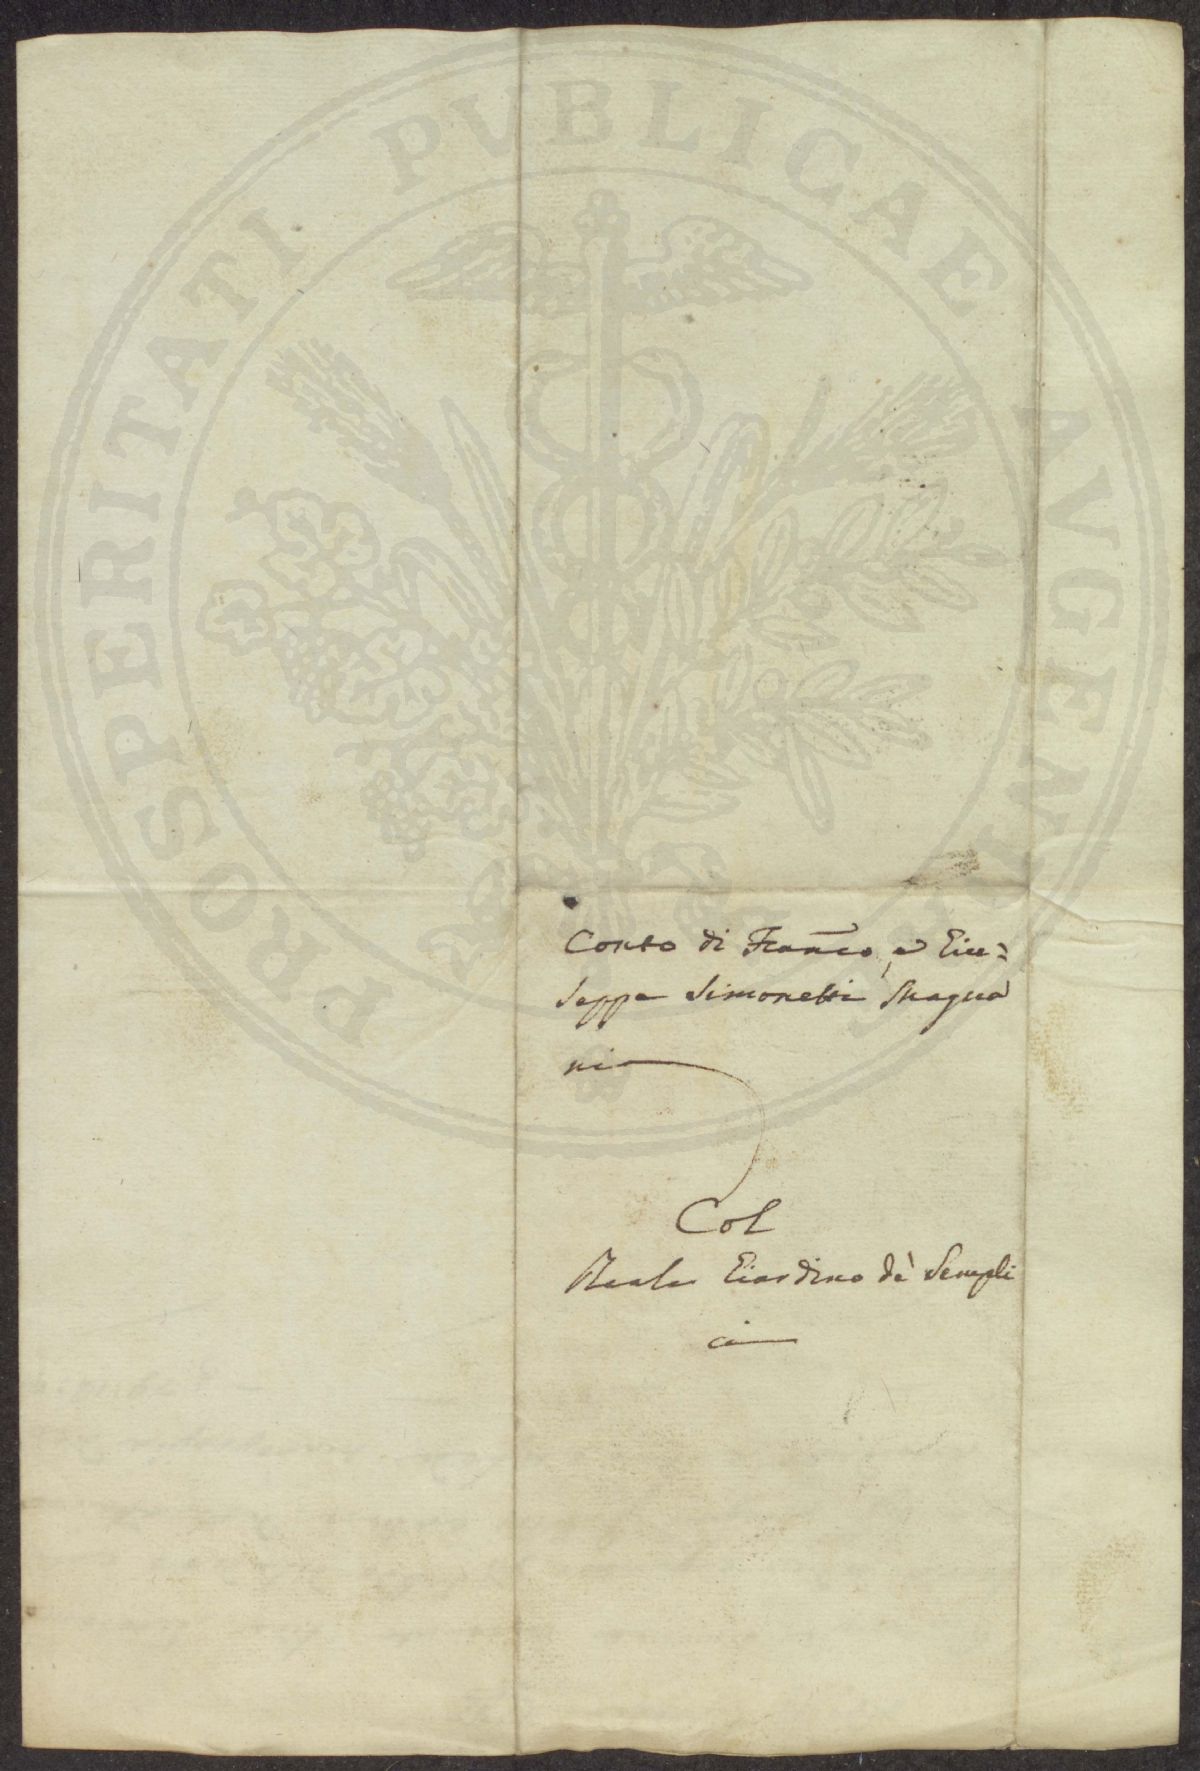 PROSPERITATI PUBLICAE AVGENDAE
Conto di Franco, e Giu=
seppe Simonetti Magna
ni
Col
Reale Giardino de' Sempli
ci